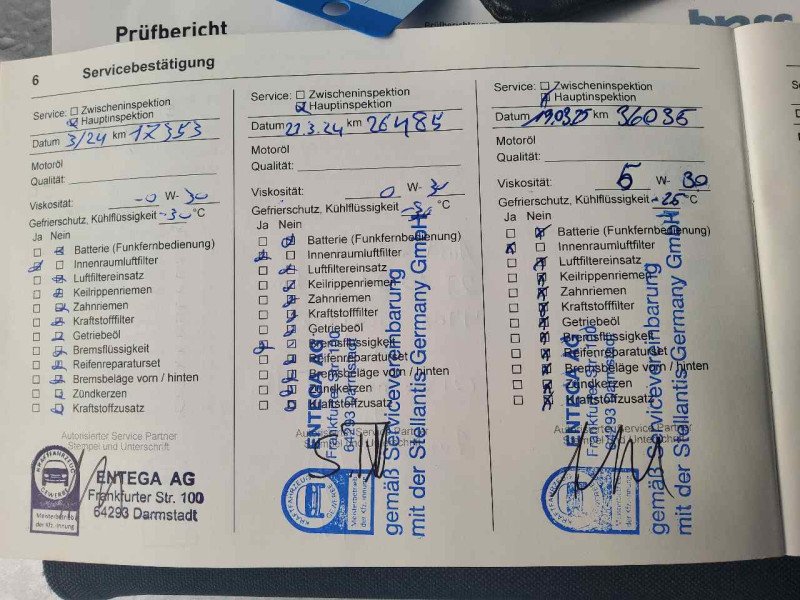 Prüfbericht
6 Servicebestätigung
Service: Zwischeninspektion
Hauptinspektion
Datum 3/24 km 17353
Motoröl
Qualität:
Viskosität: 0 W- 30
Gefrierschutz, Kühlflüssigkeit -30 °C
Ja Nein
Batterie (Funkfernbedienung)
Innenraumluftfilter
Luftfiltereinsatz
Keilrippenriemen
Zahnriemen
Kraftstofffilter
Getriebeöl
Bremsflüssigkeit
Reifenreparaturset
Bremsbeläge vorn / hinten
Zündkerzen
Kraftstoffzusatz
Autorisierter Service Partner
Stempel und Unterschrift
KRAFTFAHRZEUG
GEWERBE
Meisterbetrieb
der Kfz.-Innung
ENTEGA AG
Frankfurter Str. 100
64293 Darmstadt
Service: Zwischeninspektion
Hauptinspektion
Datum 22.3.24 km 26485
Motoröl
Qualität:
Viskosität: 0 W- 30
Gefrierschutz, Kühlflüssigkeit °C
Ja Nein
Batterie (Funkfernbedienung)
Innenraumluftfilter
Luftfiltereinsatz
Keilrippenriemen
Zahnriemen
Kraftstofffilter
Getriebeöl
Bremsflüssigkeit
Reifenreparaturset
Bremsbeläge vorn / hinten
Zündkerzen
Kraftstoffzusatz
Autorisierter Service Partner
Stempel und Unterschrift
KRAFTFAHRZEUG
GEWERBE
Meisterbetrieb
der Kfz.-Innung
ENTEGA AG
Frankfurter Str. 100
64293 Darmstadt
gemäß Servicevereinbarung
mit der Stellantis Germany GmbH
Service: Zwischeninspektion
Hauptinspektion
Datum 19.03.25 km 36036
Motoröl
Qualität:
Viskosität: 5 W- 30
Gefrierschutz, Kühlflüssigkeit -25 °C
Ja Nein
Batterie (Funkfernbedienung)
Innenraumluftfilter
Luftfiltereinsatz
Keilrippenriemen
Zahnriemen
Kraftstofffilter
Getriebeöl
Bremsflüssigkeit
Reifenreparaturset
Bremsbeläge vorn / hinten
Zündkerzen
Kraftstoffzusatz
Autorisierter Service Partner
Stempel und Unterschrift
ENTEGA AG
Frankfurter Str. 100
64293 Darmstadt
gemäß Servicevereinbarung
mit der Stellantis Germany GmbH